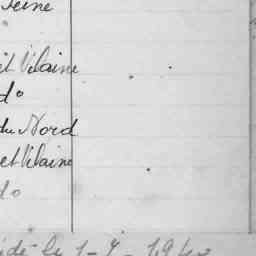 Seine
et Vilaine
do
du Nord
et Vilaine
do
dé le 1-7-1942